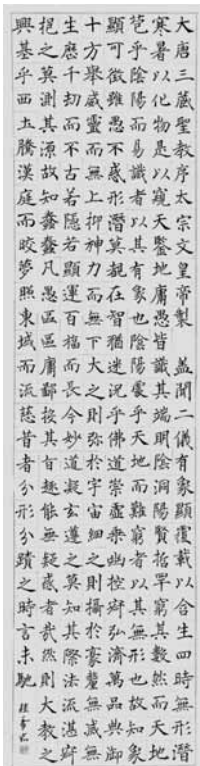 大唐三藏聖教序太宗文皇帝製 蓋聞二儀有象顯覆載以含生四時無形潛
寒暑以化物是以窺天鑒地庸愚皆識其端明陰洞陽賢哲罕窮其數然而天地
苞乎陰陽而易識者以其有象也陰陽處乎天地而難窮者以其無形也故知象
顯可徵雖愚不惑形潛莫覩在智猶迷況乎佛道崇虛乘幽控寂弘濟萬品典御
十方舉威靈而無上抑神力而無下大之則彌於宇宙細之則攝於豪釐無滅無
生歷千劫而不古若隱若顯運百福而長今妙道凝玄遵之莫知其際法流湛寂
挹之莫測其源故知蠢蠢凡愚區區庸鄙投其旨趣能無疑惑者哉然則大教之
興基乎西土騰漢庭而皎夢照東域而流慈昔者分形分蹟之時言未馳